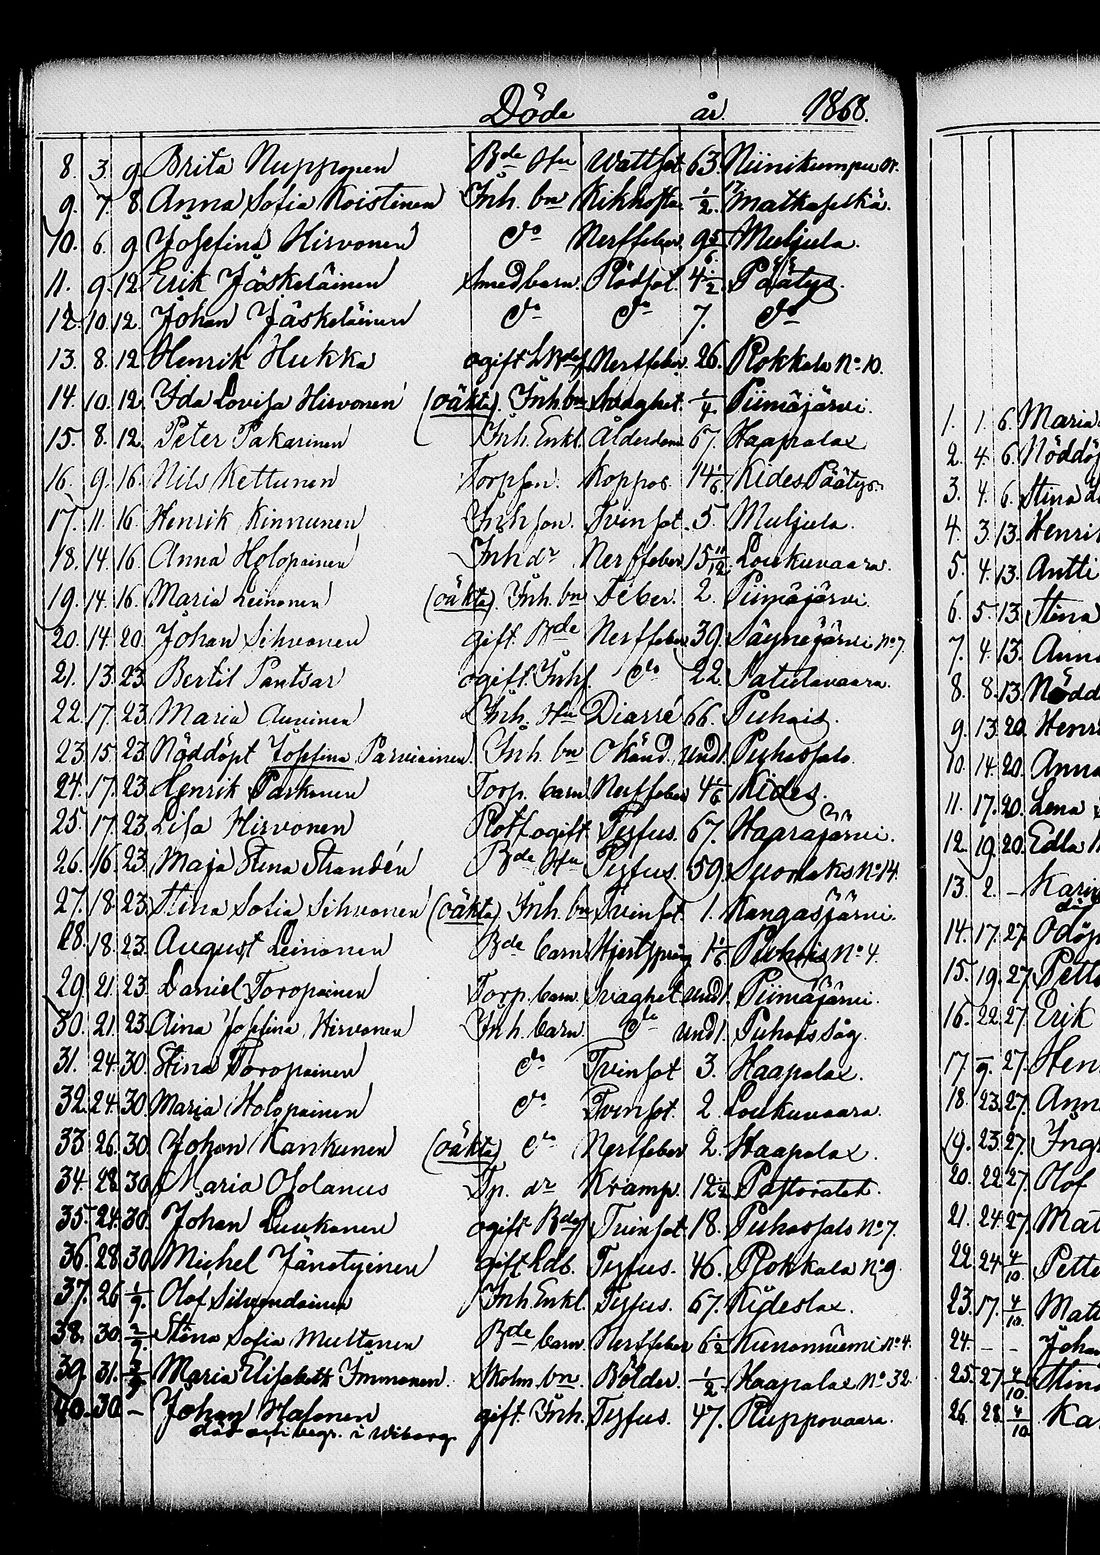 Döde år 1868.
8. 3. 9. Brita Nuppopen Bde Hu Wattsot 63. Niinikumpu
9. 7. 8. Anna Sofia Koistinen Inh. bn Kikhosta 1/2 Matkaselkä.
10. 6. 9. Josefina Hirvonen do Nerffeber 9 5/6 Muljula.
11. 9. 12. Erik Jäskeläinen Smedbarn. Rödsot. 4 1/2 Päätys.
12. 10. 12. Johan Jäskeläinen do do 7. do
13. 8. 12. Henrik Hukka ogift Nerffeber 26. Rokkala No 10.
14. 10. 12. Ida Lovisa Hirvonen (oäkta). Inh. bn Svaghet 1/4 Piimäjärvi.
15. 8. 12. Peter Pakarinen Inh. Enkl. Ålderdom 67. Haapalax
16. 9. 16. Nils Kettunen Torpson. Koppor. 14 1/6 Kides Päätys.
17. 11. 16. Henrik Kinnunen Inhson. Tvinsot. 5. Muljula.
18. 14. 16. Anna Holopainen Inh dr Nerffeber 15 11/12 Loukuvaara.
19. 14. 16. Maria Leinonen (oäkta). Inh. bn Feber. 2. Piimäjärvi.
20. 14. 20. Johan Sihvonen gift. Bde Nerffeber 39. Säynejärvi No 7.
21. 13. 23. Bertil Pantsar ogift. Inh do 22. Patulavaara.
22. 17. 23. Maria Auvinen Inh. Hu Diarré 66. Puhois.
23. 15. 23. Nöddöpt Josefina Parviainen Inh. bn Okänd. und 1. Puhossalo.
24. 17. 23. Henrik Parkonen Torp. barn Nerffeber 4 1/6 Kides.
25. 17. 23. Lisa Hirvonen Rotf. ogift. Tyfus. 67. Haarajärvi.
26. 16. 23. Maja Stina Strandén Bde Hu Tyfus 59. Suorlaks No 14.
27. 18. 23. Stina Sofia Sihvonen (oäkta) Inh. bn Tvinsot 1. Kangasjärvi.
28. 18. 23. August Leinonen Bde barn 1 1/6 Puhois No 4.
29. 21. 23. Daniel Toropainen Torp. barn. Svaghet und 1. Piimäjärvi.
30. 21. 23. Aina Josefina Hirvonen Inh. barn. do und 1. Puhois Såg.
31. 24. 30. Stina Toropainen do Tvinsot 3. Haapalax.
32. 24. 30. Maria Holopainen do Tvinsot 2. Loukuvaara.
33. 26. 30. Johan Kankunen (oäkta) do Nerffeber 2. Haapalax.
34. 28. 30. Maria Osolanus Tp. dr Kramp. 12 1/2 Pastoratet.
35. 24. 30. Johan Luukonen ogift Bdes Tvinsot 18. Puhossalo No 7.
36. 28. 30. Michel Jänötyinen gift Ldb. Tyfus. 46. Rokkala No 9.
37. 26. 1/9. Olof Silvendoinen Inh. Enkl. Tyfus. 67. Kideslax.
38. 30. 2/9 Stina Sofia Multanen Bde barn. Nerffeber 6 1/2 Kunonniemi No 4.
39. 31. Maria Elisabeth Immonen. Skolm. bn. Bölder. 1/2 Haapalax No 32.
40. 30. – Johan Hatonen gift Inh. Tyfus. 47. Ruppovaara.
död och begr. i Wiborg
1. 1. 6. Maria
2. 4. 6. Nöddöp
3. 4. 6. Stina
4. 3. 13. Henrik
5. 4. 13. Antti
6. 5. 13. Stina
7. 4. 13. Anna
8. 8. 13. Nödd
9. 13. 20. Henri
10. 14. 20. Anna
11. 17. 20. Lena
12. 19. 20. Edla
13. 2. – Karin
14. 17. 27. Odöp
15. 19. 27. Pette
16. 22. 27. Erik
17. 27. Hen
18. 23. 27. Ann
19. 23. 27. Ing
20. 22. 27. Olof
21. 24. 27. Mat
22. 24. 4/10 Pette
23. 17. 4/10. Matt
24. – – Joha
25. 27. 4/10 Stina
26. 28. 4/10 Ka